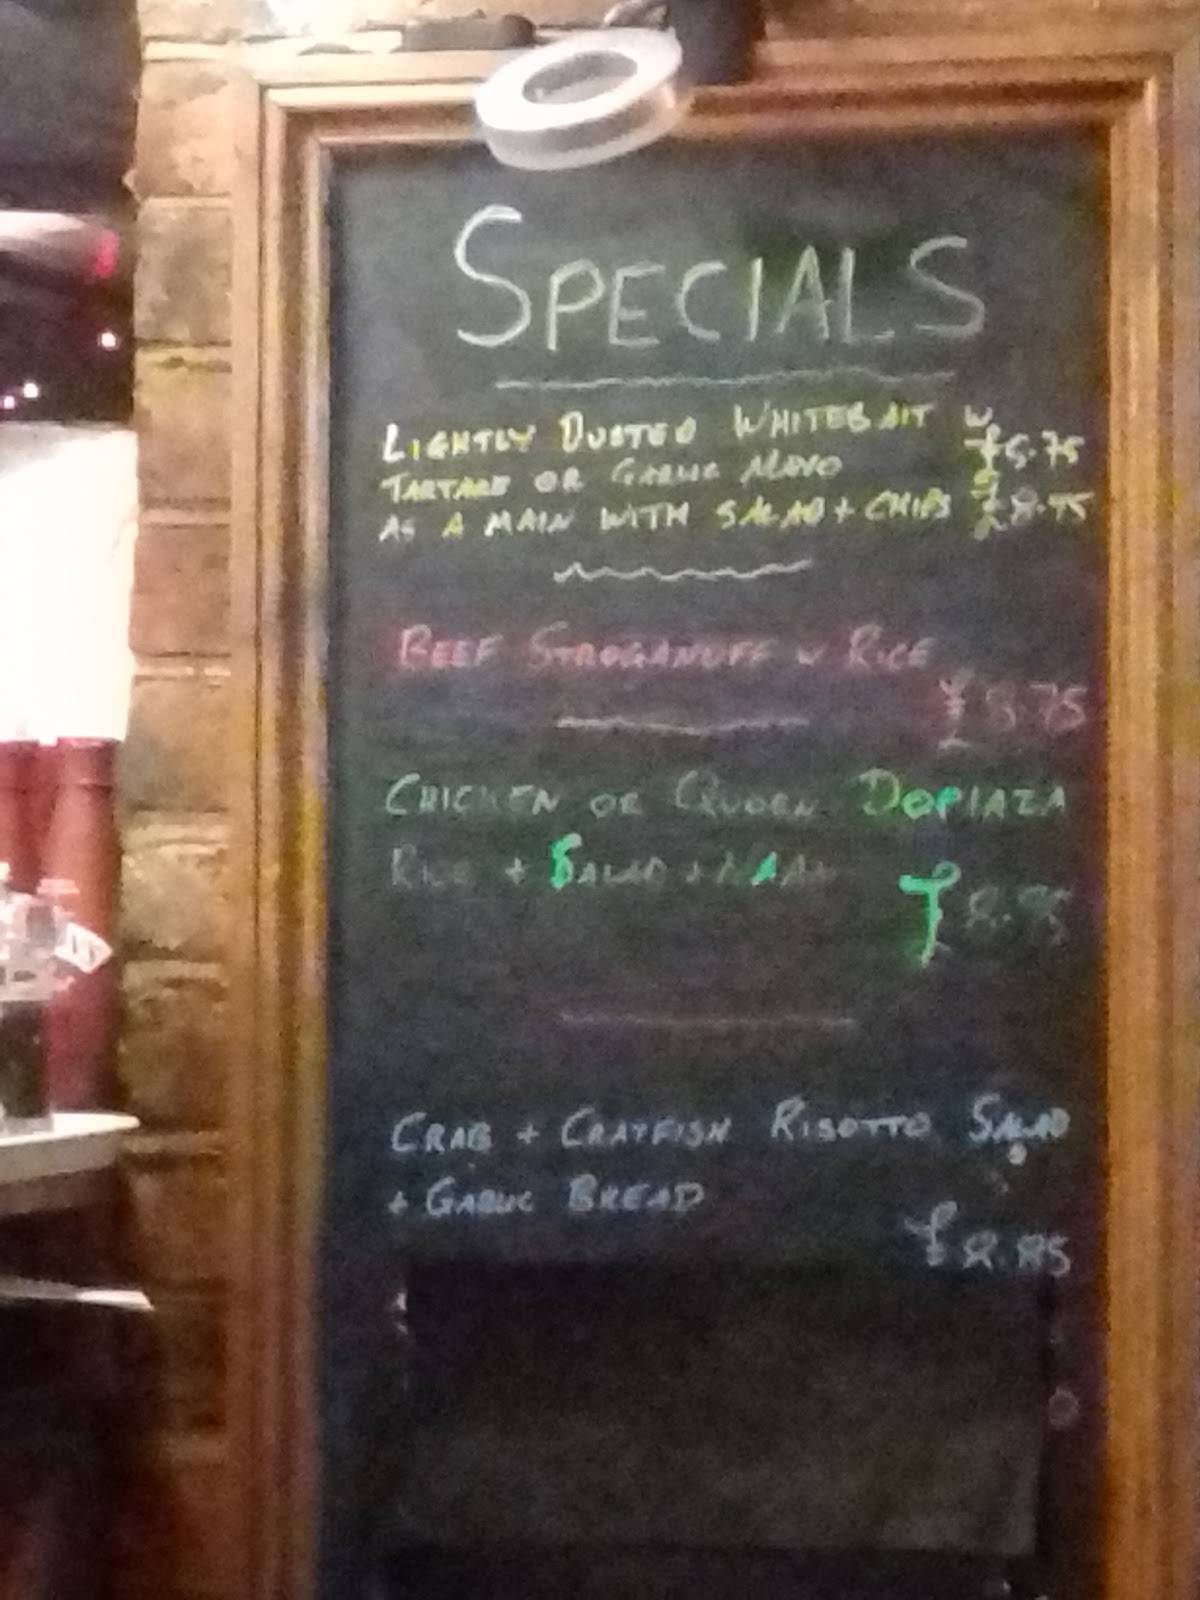 SPECIALS
LIGHTLY DUSTED WHITEBAIT W
TARTARE OR GARLIC MAYO £5.75
AS A MAIN WITH SALAD + CHIPS £8.75
BEEF STROGANOFF W RICE
£8.75
CHICKEN OR QUORN DOPIAZA
RICE + SALAD + NAAN
£8.95
CRAB + CRAYFISH RISOTTO SALAD
+ GARLIC BREAD
£8.85